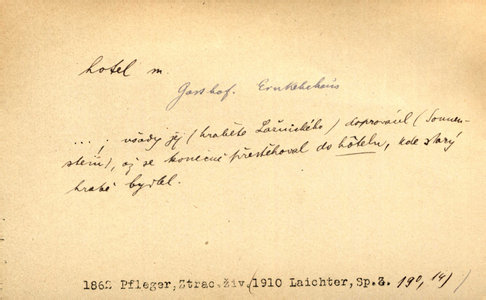 hotel m.
Gasthof. Einkehrhaus
..., všady jej (hraběte Lašnického) doprovázel (Sonnen-
stein), až se konečně přestěhoval do hôtelu, kde starý
hrabě bydlel.
1862 Pfleger, Ztrac. živ. (1910 Laichter, Sp. Z. 190, 14)